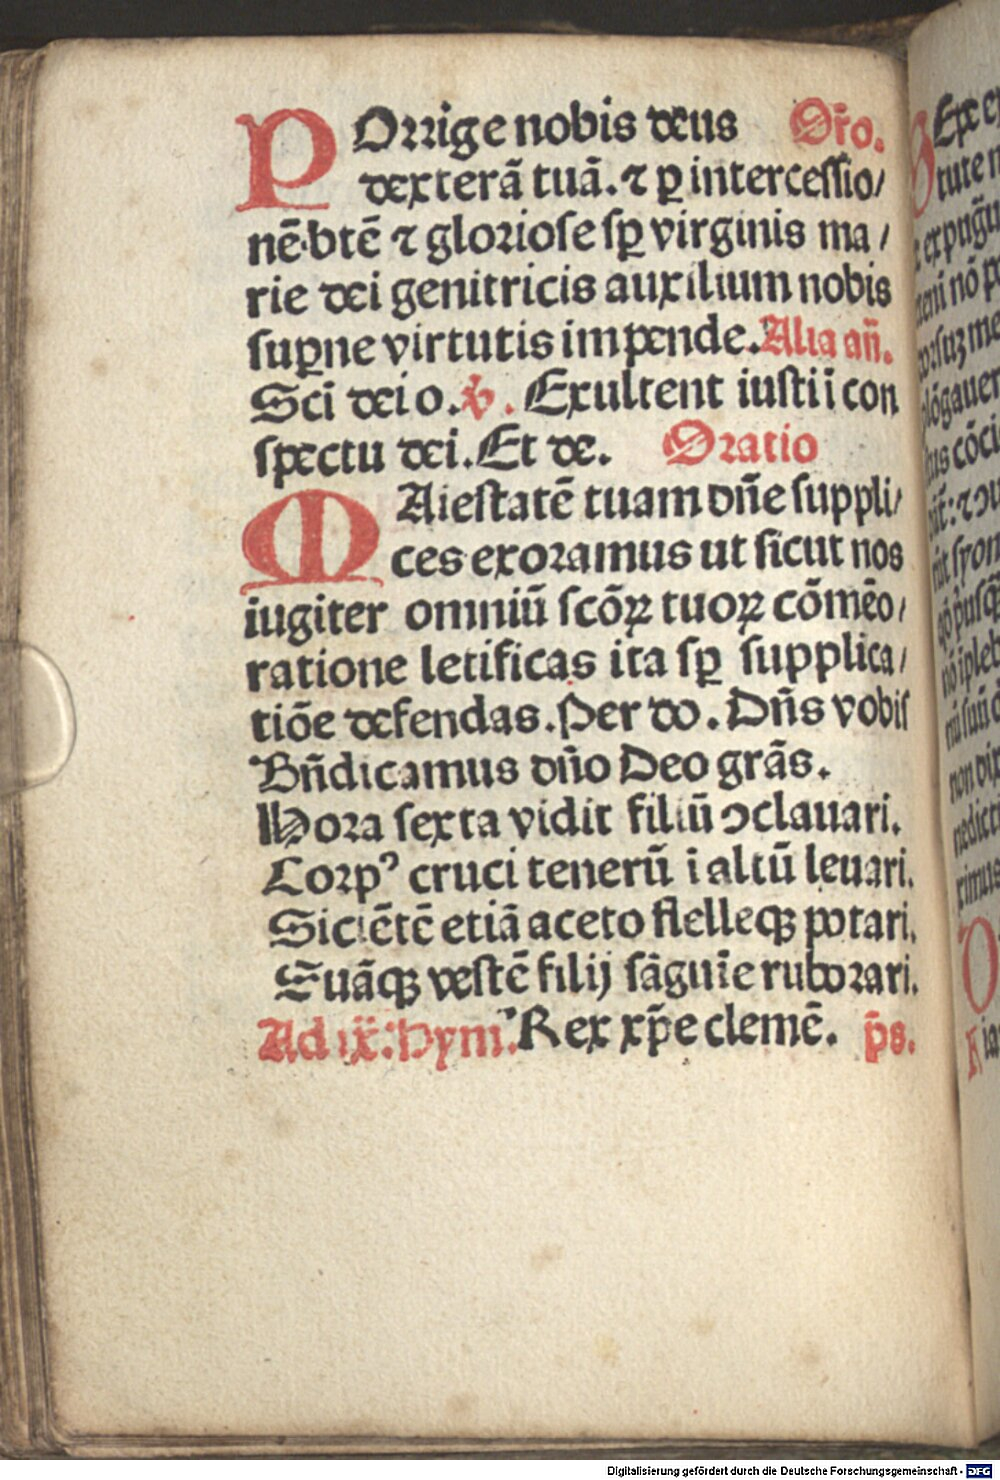 POrrige nobis deus Oŕo.
dexterā tuā. ⁊ ꝑ intercessio/
nē btē ⁊ gloriose sꝑ virginis ma/
rie dei genitricis auxilium nobis
suꝑne virtutis impende. Alia añ.
Sci̅ dei o. ꝟ. Exultent iusti ī con
spectu dei. Et de. Oratio
MAiestatē tuam dñe suppli/
ces exoramus ut sicut nos
iugiter omniū scōꝝ tuoꝝ cōmēo/
ratione letificas ita sꝑ supplica/
tiōe defendas. Per do. Dñs vobis
Bñdicamus dño Deo grās.
Hora sexta vidit filiū ↄclauari.
Corpꝰ cruci tenerū ī altū leuari.
Siciētē etiā aceto flelleqꝫ potari.
Suāqꝫ vestē filij sāguīe ruborari.
Ad ix. Hym. Rex xp̄e clemē. p̄s.
Digitalisierung gefördert durch die Deutsche Forschungsgemeinschaft - DFG